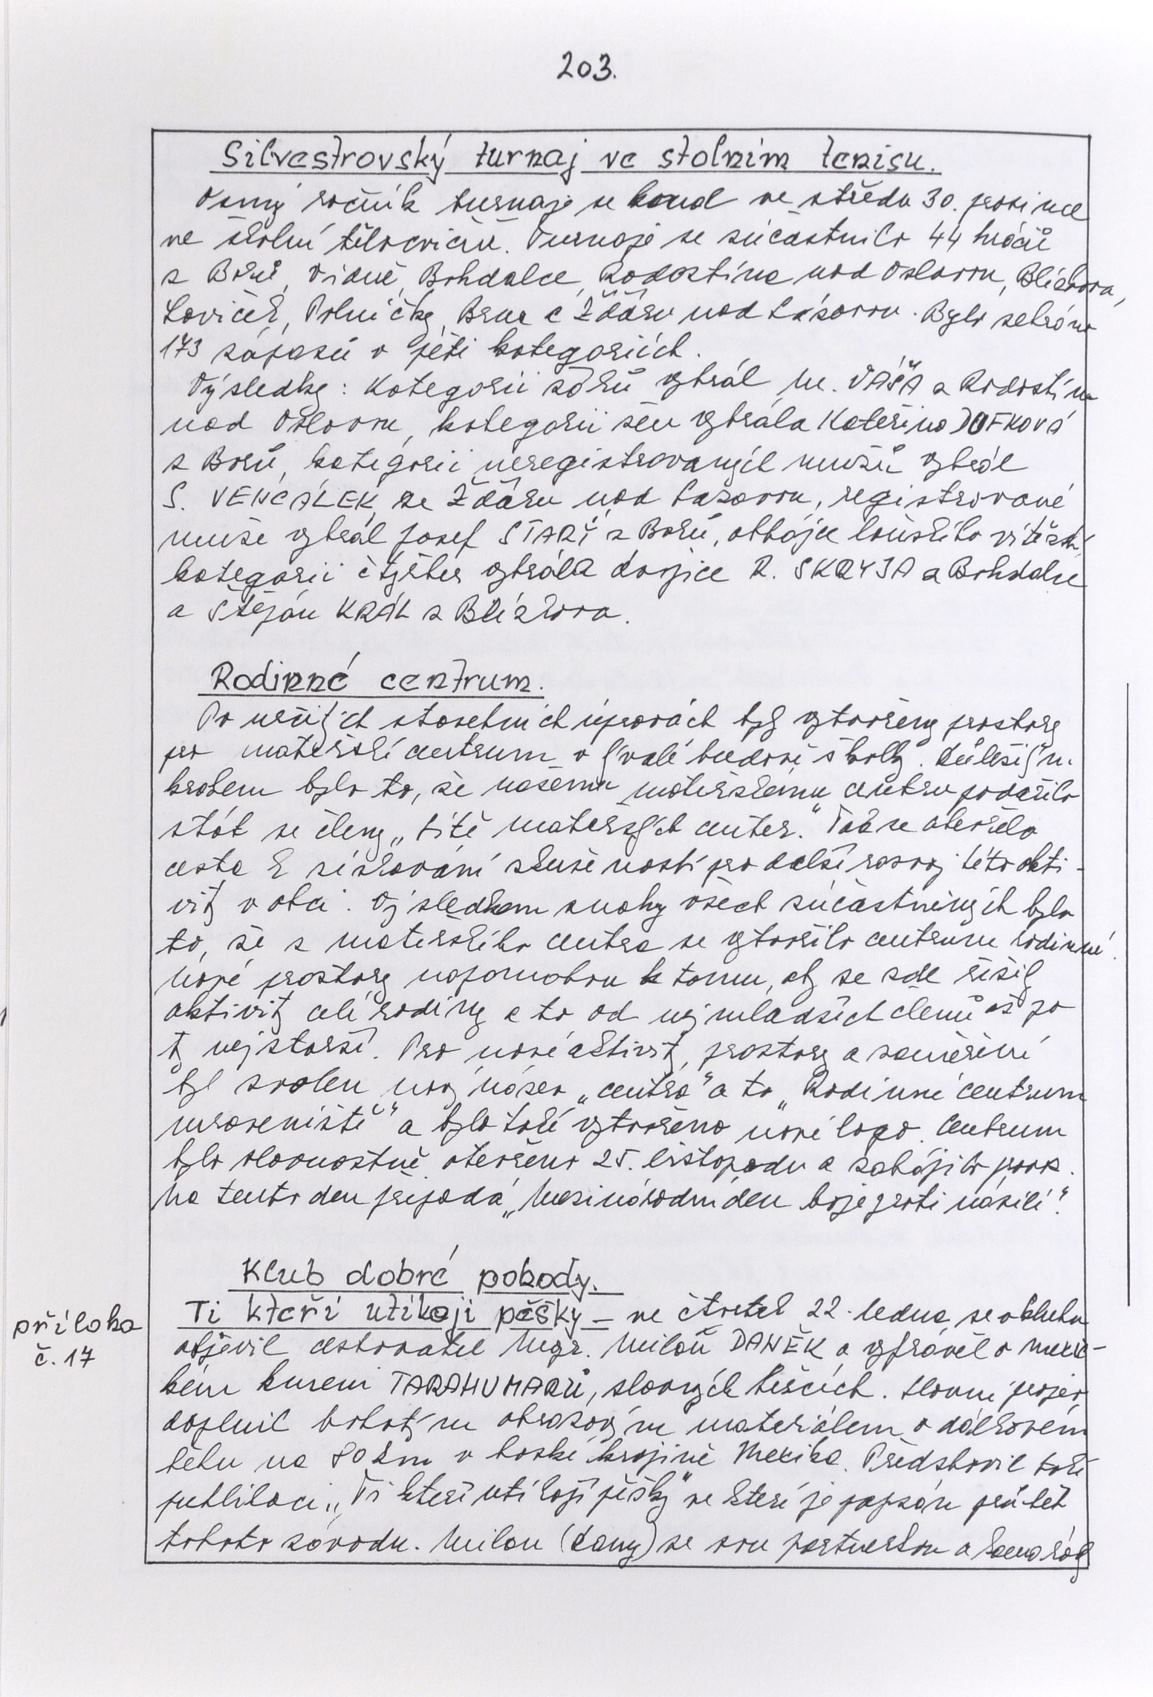 203.
Silvestrovský turnaj ve stolním tenisu.
Osmý ročník turnaje se konal ve středu 30. prosince
ve školní tělocvičně. Turnaje se súčastnilo 44 hráčů
z Borů, Vídně, Bohdalce, Radostína nad Oslavou, Blízkova,
Loviček, Polničky, Brna a Žďáru nad Sázavou. Bylo sehráno
173 zápasů v pěti kategoriích.
Výsledky: Kategorii žáků vyhrál M. VÁŠA z Radostína
nad Oslavou, kategorii žen vyhrála Kateřina DOFKOVÁ
z Borů, kategorii neregistrovaných mužů vyhrál
S. VENCÁLEK ze Žďáru nad Sázavou, registrované
muže vyhrál Josef STARÝ z Borů, obhájce loňského vítězství,
kategorii čtyřher vyhrála dvojice R. SKRYJA z Bohdalce
a Štěpán KRÁL z Blízkova.
Rodinné centrum.
Po určitých stavebních úpravách byly vytvořeny prostory
pro mateřské centrum v bývalé budově školky. Důležitým
krokem bylo to, že našemu mateřskému centru podařilo
stát se členy „Sítě mateřských center." Tak se otevřela
cesta k získávání zkušeností pro další rozvoj této akti-
vity v obci. Výsledkem snahy všech súčastněných bylo
to, že z mateřského centra se vytvořilo centrum rodinné.
Nové prostory napomohou k tomu, aby se zde řešily
aktivity celé rodiny a to od nejmladších členů až po
ty nejstarší. Pro nové aktivity, prostory a zaměření
byl zvolen nový název „centra" a to „Rodinné centrum
mraveniště" a bylo také vytvořeno nové logo. Centrum
bylo slavnostně otevřeno 25. listopadu a zahájilo prov.
Na tento den připadá „Mezinárodní den boje proti násilí".
Klub dobré pohody.
Ti kteří utíkají pěšky – ve čtvrtek 22. ledna se v klubu
příloha
č. 17
objevil cestovatel Mgr. Miloň DANĚK a vyprávěl o mexic-
kém kmeni TARAHUMARŮ, slavných běžcích. Slovní projev
doplnil bohatým obrazovým materiálem o dálkovém
běhu na 80 km v horské krajině Mexika. Představil také
publikaci „Ti kteří utíkají pěšky" ve které je popsán průběh
tohoto závodu. Milan (Dany) se svou partnerkou a kamarády